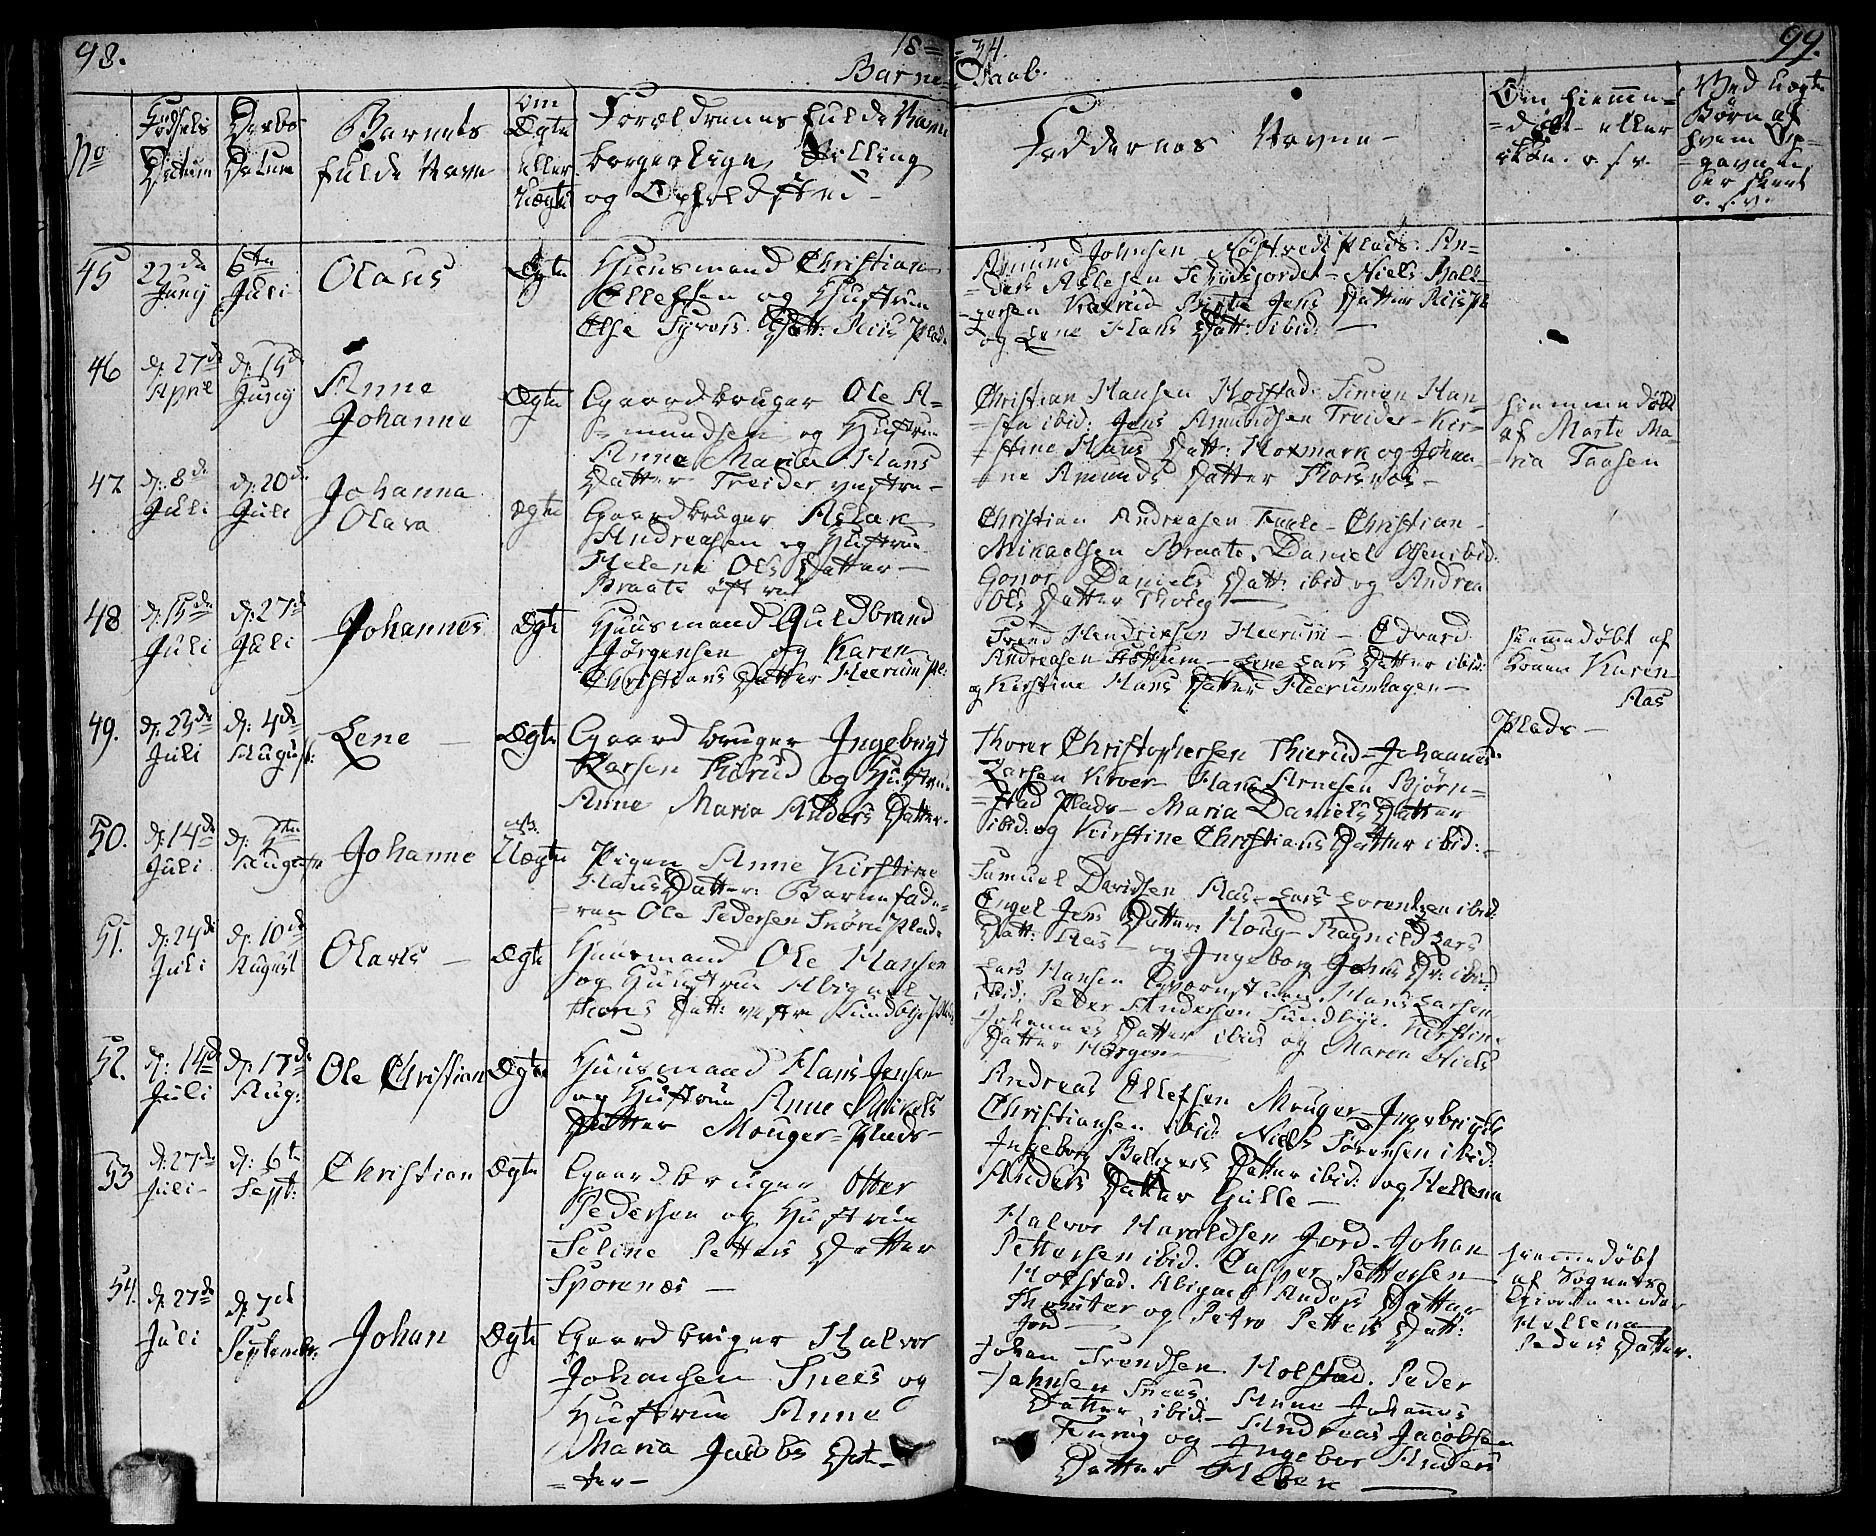 98.
18 = 34.
99.
Barne Daab.
No
Fødsels Datum
Daabs Datum
Barnets fulde Navn
Om Ægte eller Uægte
Forældrenes fulde Navn
borgerlige Stilling
og Opholdsted
Faddernes Navne
Om hiemme-
døbt eller
ikke. o.s.v.
Ved uægte
Børn af
hvem
45
22de Juny
6te Juli
Olaus
Ægte
Huusmand Christian
Ellefsen og Hustrue
Else Sÿvers Datt: Riis Plads
Amund Johnsen Plads: An-
ders Niels Hall-
Jens Datter Riis pl
og Lene Hans Datt: ibid:
46
d: 27de April
d: 15de Juny
Anne
Johanne
Ægte
Gaardbruger Ole A-
mundsen og Hustrue
Anne Maria Hans
Datter Treider vestre
Christian Hansen Holstad. Simen Han-
sen ibid: Jens Amundsen Treider - Kir-
stine Hans Datt: og Johan-
ne Amunds Datter
hiemmedøbt
af Marte Ma-
ria Taasen
47
d: 8de Juli
d: 20de Juli
Johanna
Olava
Ægte
Gaardbruger Aslak
Andreasen og Hustrue
Helene Ols Datter
Braate østre
Christian Andreasen - Christian
Mikaelsen Braate. Daniel Olsen ibid:
Daniels Datt: ibid og Andrea
Ols Datter
48
d: 15de Juli
d: 27de Juli
Johannes
Ægte
Huusmand Guldbrand
Jørgensen og Karen
Christians Datter Heerum pl:
Trond Hendriksen Heerum - Edvard
Andreasen - Lene Lars Datter ibid:
og Kirstine Hans Datter Heerumhagen
hiemmedøbt af
Konen Karen
Aas
Plads
49.
d: 23de Juli
d: 4de August:
Lene
Ægte
Gaardbruger Ingebrigt
Larsen Thirud og Hustrue
Anne Maria Anders Datter.
Thorer Christophersen Thirud - Johannes
Larsen Kroer - Hans Arnesen Bjørn-
stad Plads - Maria Daniels Datter
ibid: og Kirstine Christians Datter ibid:
50.
d: 14de Juli
d: August
Johanne
Uægte
Pigen Anne Kirstine
Hans Datter: Barnefade-
ren Ole Pedersen Plads
Samuel Davidsen Aas - Lars Lorentsen ibid.
Engel Jens Datter: Houg - Ragnild Lars
Datt: Aas - og Ingeborg Johns Dr: ibid:
51.
d: 24de Juli
d: 10de August
Olaves
Ægte
Huusmand Ole Hansen
og Huustrue Abigael
Datt: vestre Sundbye Plads
Lars Hansen Hans Larsen
ibid: Peder Andersen Sundbye. Kirstine
Johannes Datter ibid og Maren Niels
Datter Horgen
52.
d: 14de Juli
d: 17de Aug:
Ole Christian
Ægte
Huusmand Hans Jensen
og Hustrue Anne Mikels
Datter Mouger-Plads
Andreas Ellefsen Mouger - Ingebrigt
Christiansen ibid: Niels Sørensen ibid:
Ingeborg Datter ibid: og Hellena
Anders Datter Gulle
53
d: 27de Juli
d: 6te Sept:
Christian
Ægte
Gaardbruger Otter
Pedersen og Hustrue
Seline Petters Datter
Sporenæs
Halvor Haraldsen Jord. Johan
Pettersen ibid. Casper Pettersen
Holstad. Abigael Anders Datter
og Petra Petters Datt:
Jord
hiemmedøbt
af Sognets
Hellena
Peders Datter.
54.
d: 27de Juli
d: 7de September:
Johan
Ægte
Gaardbruger Halvor
Johansen Snees og
Hustrue Anne
Maria Jacobs Dat-
ter
Johan Trondsen Holstad. Peder
Johnsen Snees. Anne Johannes
Datter ibid - Andreas Jacobsen
og Ingebor Anders
Datter